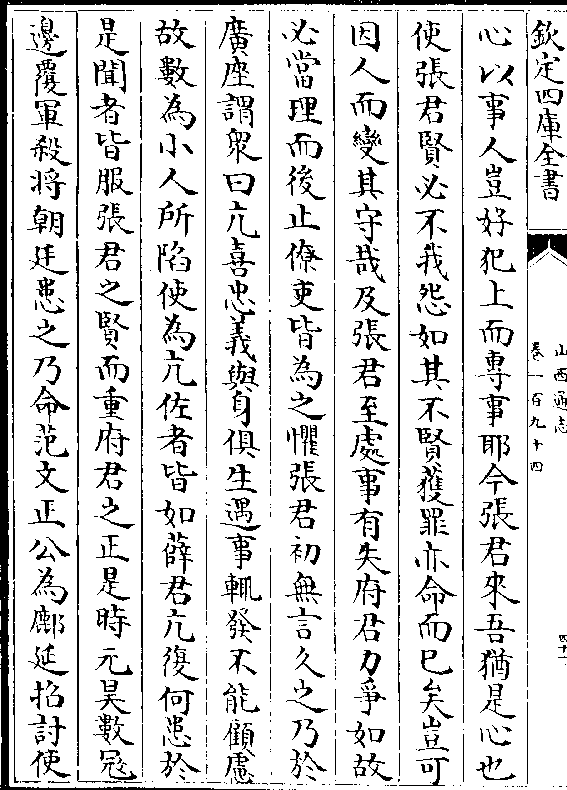 欽定四庫全書
山西通志
卷一百九十四
四十一
心以事人豈好犯上而專事耶今張君來吾猶是心也
使張君賢必不我怨如其不賢獲罪亦命而已矣豈可
因人而變其守哉及張君至處事有失府君力爭如故
必當理而後止僚吏皆為之懼張君初無言久之乃於
廣座謂衆曰亢喜忠義與身俱生遇事輒發不能顧慮
故數為小人所陷使為亢佐者皆如薛君亢復何患於
是聞者皆服張君之賢而重府君之正是時元昊數冦
邊覆軍殺将朝廷患之乃命范文正公為鄜延招討使